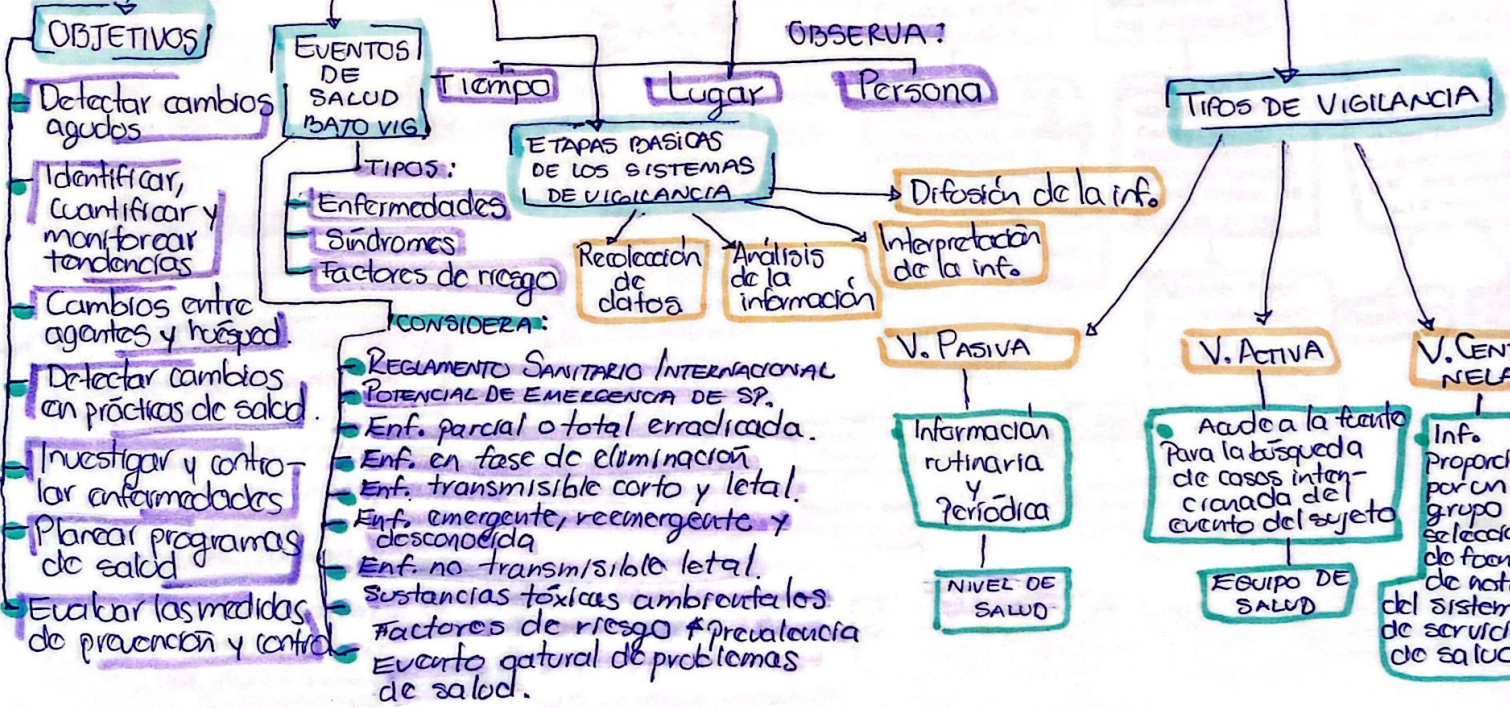 OBJETIVOS
Detectar cambios
agudos
Identificar,
cuantificar y
monitorear
tendencias
Cambios entre
agentes y huésped.
Detectar cambios
en prácticas de salud.
Investigar y contro-
lar enfermedades
Planear programas
de salud
Evaluar las medidas
de prevención y control
EVENTOS
DE
SALUD
BAJO VIG
TIPOS:
Enfermedades
Síndromes
Factores de riesgo
CONSIDERA:
REGLAMENTO SANITARIO INTERNACIONAL
POTENCIAL DE EMERGENCIA DE SP.
Enf. parcial o total erradicada.
Enf. en fase de eliminación
Enf. transmisible corto y letal.
Enf. emergente, reemergente y
desconocida
Enf. no transmisible letal.
Sustancias tóxicas ambientales
Factores de riesgo ↑ Prevalencia
Evento natural de problemas
de salud.
OBSERVA:
Tiempo
Lugar
Persona
ETAPAS BASICAS
DE LOS SISTEMAS
DE VIGILANCIA
Recolección
de
datos
Análisis
de la
información
Interpretación
de la info.
Difusión de la info.
TIPOS DE VIGILANCIA
V. PASIVA
Información
rutinaria
y
Periódica
NIVEL DE
SALUD
V. ACTIVA
Acude a la fuente
Para la búsqueda
de casos inten-
cionada del
evento del sujeto
EQUIPO DE
SALUD
V. CENT
NELA
Info
proporci
por un
grupo
selecci
de
de
del sistem
de servici
de salud